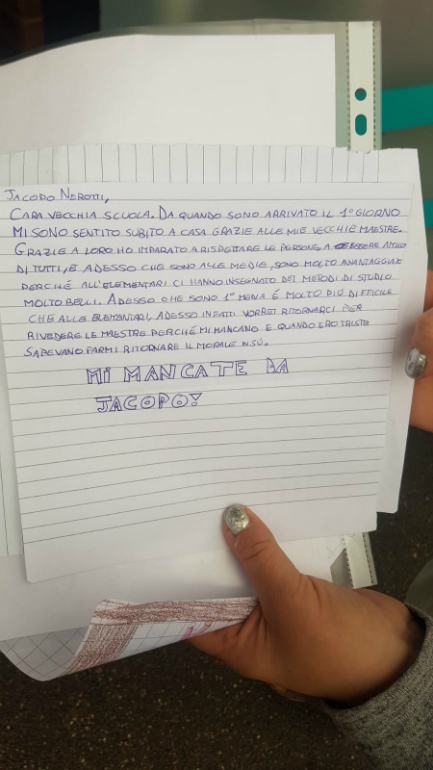 JACOPO NEROTTI,
CARA VECCHIA SCUOLA. DA QUANDO SONO ARRIVATO IL 1° GIORNO
MI SONO SENTITO SUBITO A CASA GRAZIE ALLE MIE VECCHIE MAESTRE.
GRAZIE A LORO HO IMPARATO A RISPETTARE LE PERSONE, A ESSERE AMICO
DI TUTTI, E ADESSO CHE SONO ALLE MEDIE, SONO MOLTO AVANTAGGIATO
PERCHÉ ALL'ELEMENTARI CI HANNO INSEGNATO DEI METODI DI STUDIO
MOLTO BELLI. ADESSO CHE SONO 1° MEDIA É MOLTO PIÙ DIFFICILE
CHE ALLE ELEMENTARI, ADESSO INFATTI VORREI RITORNARCI PER
RIVEDERE LE MAESTRE PERCHÉ MI MANCANO E QUANDO ERO TRISTE
SAPEVANO FARMI RITORNARE IL MORALE IN SÚ.
MI MANCATE DA
JACOPO!